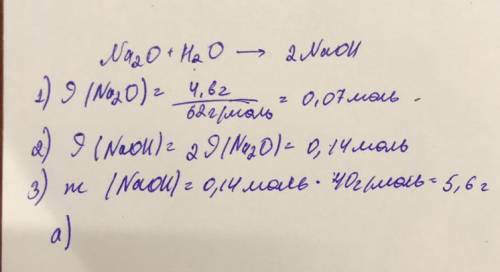 Na₂O + H₂O → 2NaOH
1) ϑ (Na₂O) = 4,6г / 62г/моль = 0,07 моль.
2) ϑ (NaOH) = 2ϑ(Na₂O) = 0,14 моль
3) m (NaOH) = 0,14 моль · 40г/моль = 5,6 г
а)